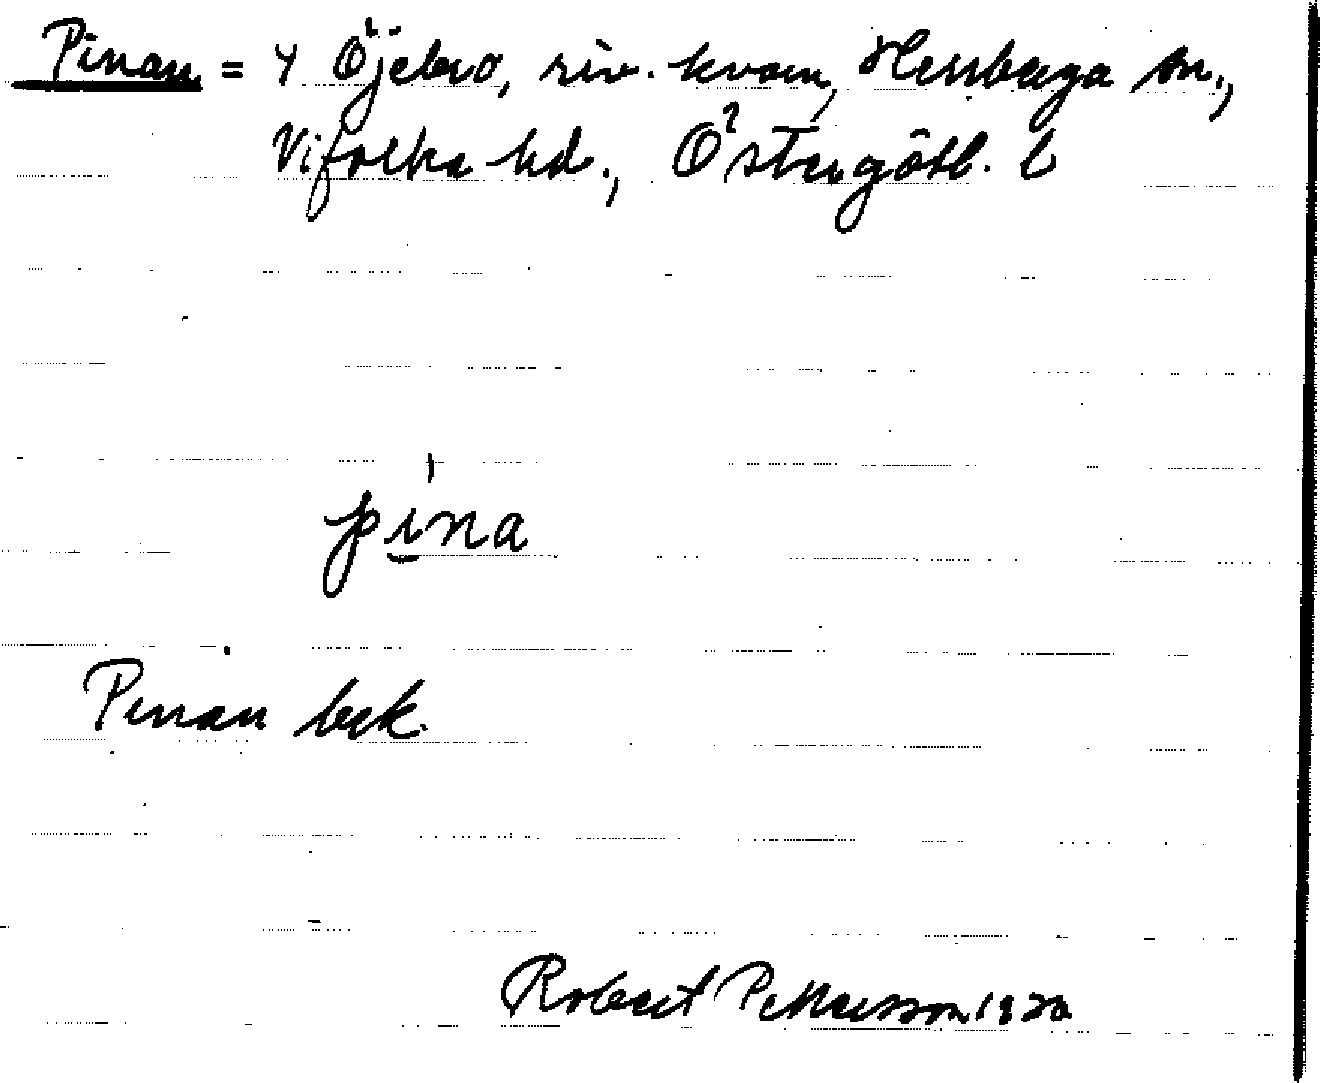 Pinan = Y Öjebro, riv. kvarn, Herrberga sn.,
Vifolka hd., Östergötl. l
pina
Pinan bek.
Robert Pettersson 1920